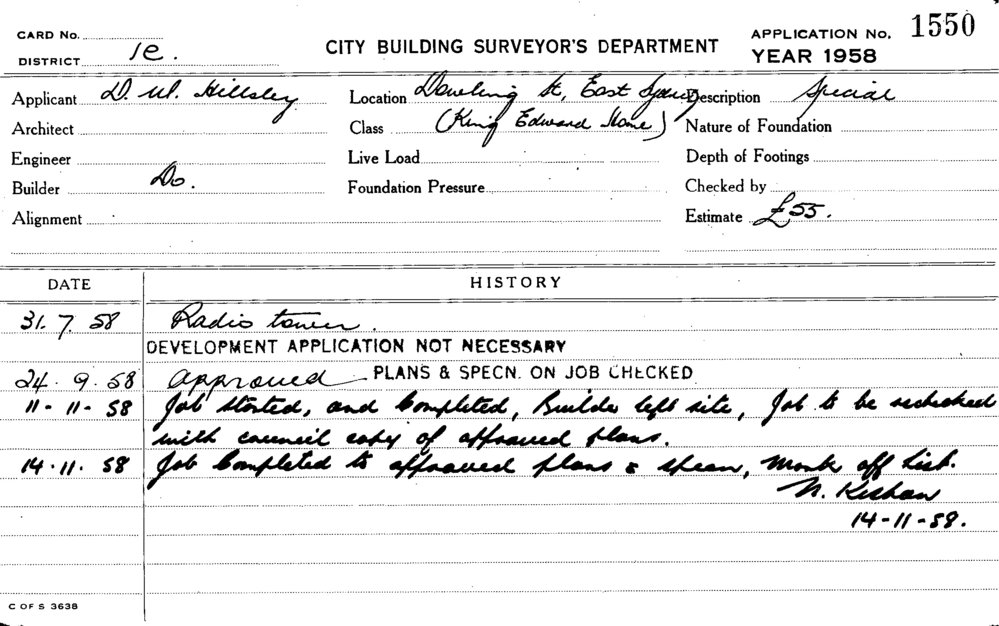 CARD No.
DISTRICT 1e.
CITY BUILDING SURVEYOR'S DEPARTMENT
APPLICATION No. 1550
YEAR 1958
Applicant D. W. Hillsley Location Dowling St, East Sydney Description Special
Architect Class (King Edward Home) Nature of Foundation
Engineer Live Load Depth of Footings
Builder Do. Foundation Pressure Checked by
Alignment Estimate £55.
DATE HISTORY
31. 7. 58 Radio tower.
DEVELOPMENT APPLICATION NOT NECESSARY
24. 9. 58 Approved PLANS & SPECN. ON JOB CHECKED
11-11-58 Job started, and Completed, Builder left site, Job to be rechecked
with council copy of approved plans.
14.11.58 Job Completed to approved plans & specn, Mark off List.
14-11-58.
C OF S 3638